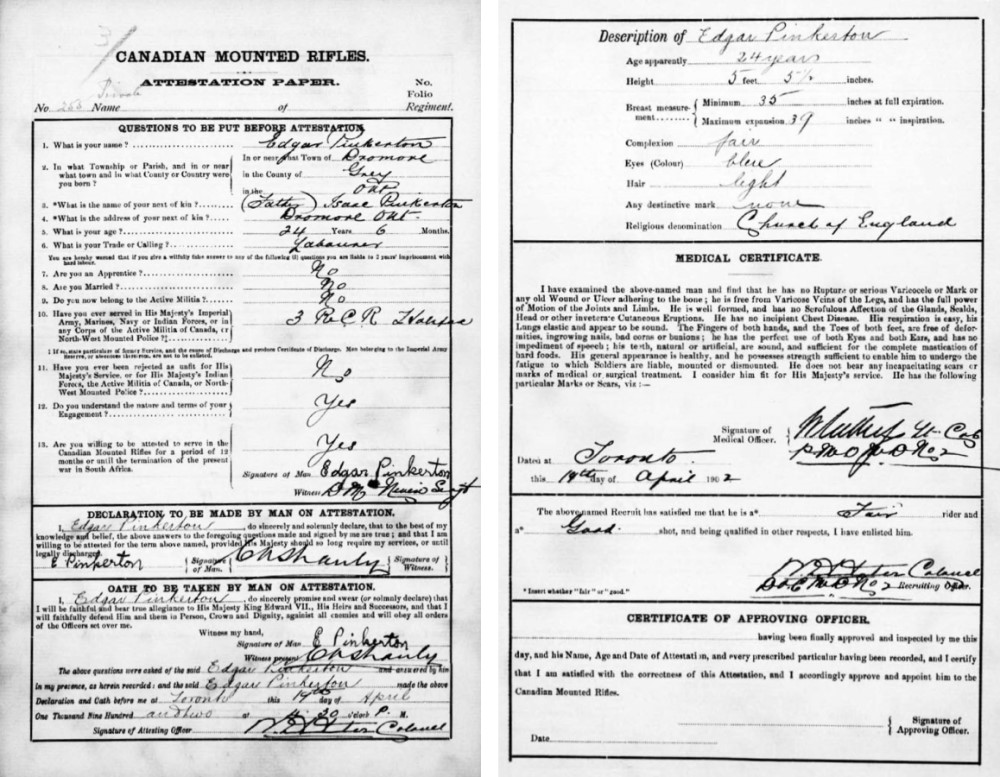 CANADIAN MOUNTED RIFLES.
ATTESTATION PAPER.
No.
Folio
No. Name of Regiment.
QUESTIONS TO BE PUT BEFORE ATTESTATION.
1. What is your name ? Edgar Pinkerton
2. In what Township or Parish, and in or near
what town and in what County or Country were
you born ?
In or near that Town of Dromore
in the County of Grey
in the Ont
3. *What is the name of your next of kin ? (Father) Isaac Pinkerton
4. *What is the address of your next of kin ? Dromore Ont.
5. What is your age ? 24 Years 6 Months.
6. What is your Trade or Calling ? Labourer
You are hereby warned that if you give a wilfully false answer to any of the following questions you are liable to 2 years' imprisonment with
hard labour.
7. Are you an Apprentice ? No
8. Are you Married ? No
9. Do you now belong to the Active Militia ? No
10. Have you ever served in His Majesty's Imperial
Army, Marines, Navy or Indian Forces, or in
any Corps of the Active Militia of Canada, or
North-West Mounted Police ?
3 R C R Halifax
‡ If so, state particulars of former Service, and the cause of Discharge and produce Certificate of Discharge. Men belonging to the Imperial Army
Reserve, or absentees therefrom, are not to be enlisted.
11. Have you ever been rejected as unfit for His
Majesty's Service, or for His Majesty's Indian
Forces, the Active Militia of Canada, or North-
West Mounted Police ?
No
12. Do you understand the nature and terms of your
Engagement ?
Yes
13. Are you willing to be attested to serve in the
Canadian Mounted Rifles for a period of 12
months or until the termination of the present
war in South Africa.
Yes
Signature of Man Edgar Pinkerton
Witness
DECLARATION TO BE MADE BY MAN ON ATTESTATION.
I, Edgar Pinkerton, do sincerely and solemnly declare, that to the best of my
knowledge and belief, the above answers to the foregoing questions made and signed by me are true; and that I am
willing to be attested for the term above named, provided His Majesty should so long require my services, or until
legally discharged.
E Pinkerton { Signature of Man. C H Shanly { Signature of Witness.
OATH TO BE TAKEN BY MAN ON ATTESTATION.
I, Edgar Pinkerton, do sincerely promise and swear (or solmnly declare) that
I will be faithful and bear true allegiance to His Majesty King Edward VII., His Heirs and Successors, and that I
will faithfully defend Him and them in Person, Crown and Dignity, against all enemies and will obey all orders
of the Officers set over me.
Witness my hand,
Signature of Man E Pinkerton
Witness present C H Shanly
The above questions were asked of the said Edgar Pinkerton and answered by him
in my presence, as herein recorded; and the said Edgar Pinkerton made the above
Declaration and Oath before me at Toronto this 19th day of April
One Thousand Nine Hundred and two at 4.30 o'clock P. M.
Signature of Attesting Officer Colonel
Description of Edgar Pinkerton
Age apparently 24 years
Height 5 feet 5½ inches.
Breast measurement { Minimum 35 inches at full expiration.
Maximum expansion 39 inches " " inspiration.
Complexion fair
Eyes (Colour) blue
Hair light
Any distinctive mark none
Religious denomination Church of England
MEDICAL CERTIFICATE.
I have examined the above-named man and find that he has no Rupture or serious Varicocele or Mark or
any old Wound or Ulcer adhering to the bone; he is free from Varicose Veins of the Legs, and has the full power
of Motion of the Joints and Limbs. He is well formed, and has no Scrofulous Affection of the Glands, Scalds,
Head or other inveterate Cutaneous Eruptions. He has no incipient Chest Disease. His respiration is easy, his
Lungs elastic and appear to be sound. The Fingers of both hands, and the Toes of both feet, are free of defor-
mities, ingrowing nails, bad corns or bunions; he has the perfect use of both Eyes and both Ears, and has no
impediment of speech; his teeth, natural or artificial, are sound, and sufficient for the complete mastication of
hard foods. His general appearance is healthy, and he possesses strength sufficient to enable him to undergo the
fatigue to which Soldiers are liable, mounted or dismounted. He does not bear any incapacitating scars or
marks of medical or surgical treatment. I consider him fit for His Majesty's service. He has the following
particular Marks or Scars, viz :—
Signature of
Medical Officer.
Dated at Toronto
this 19th day of April 1902
The above named Recruit has satisfied me that he is a* Fair rider and
a* Good shot, and being qualified in other respects, I have enlisted him.
Colonel
D.O.C. M.D. No 2 Recruiting Officer.
*Insert whether "fair" or "good."
CERTIFICATE OF APPROVING OFFICER.
having been finally approved and inspected by me this
day, and his Name, Age and Date of Attestation, and every prescribed particular having been recorded, and I certify
that I am satisfied with the correctness of this Attestation, and I accordingly approve and appoint him to the
Canadian Mounted Rifles.
Signature of
Approving Officer.
Date